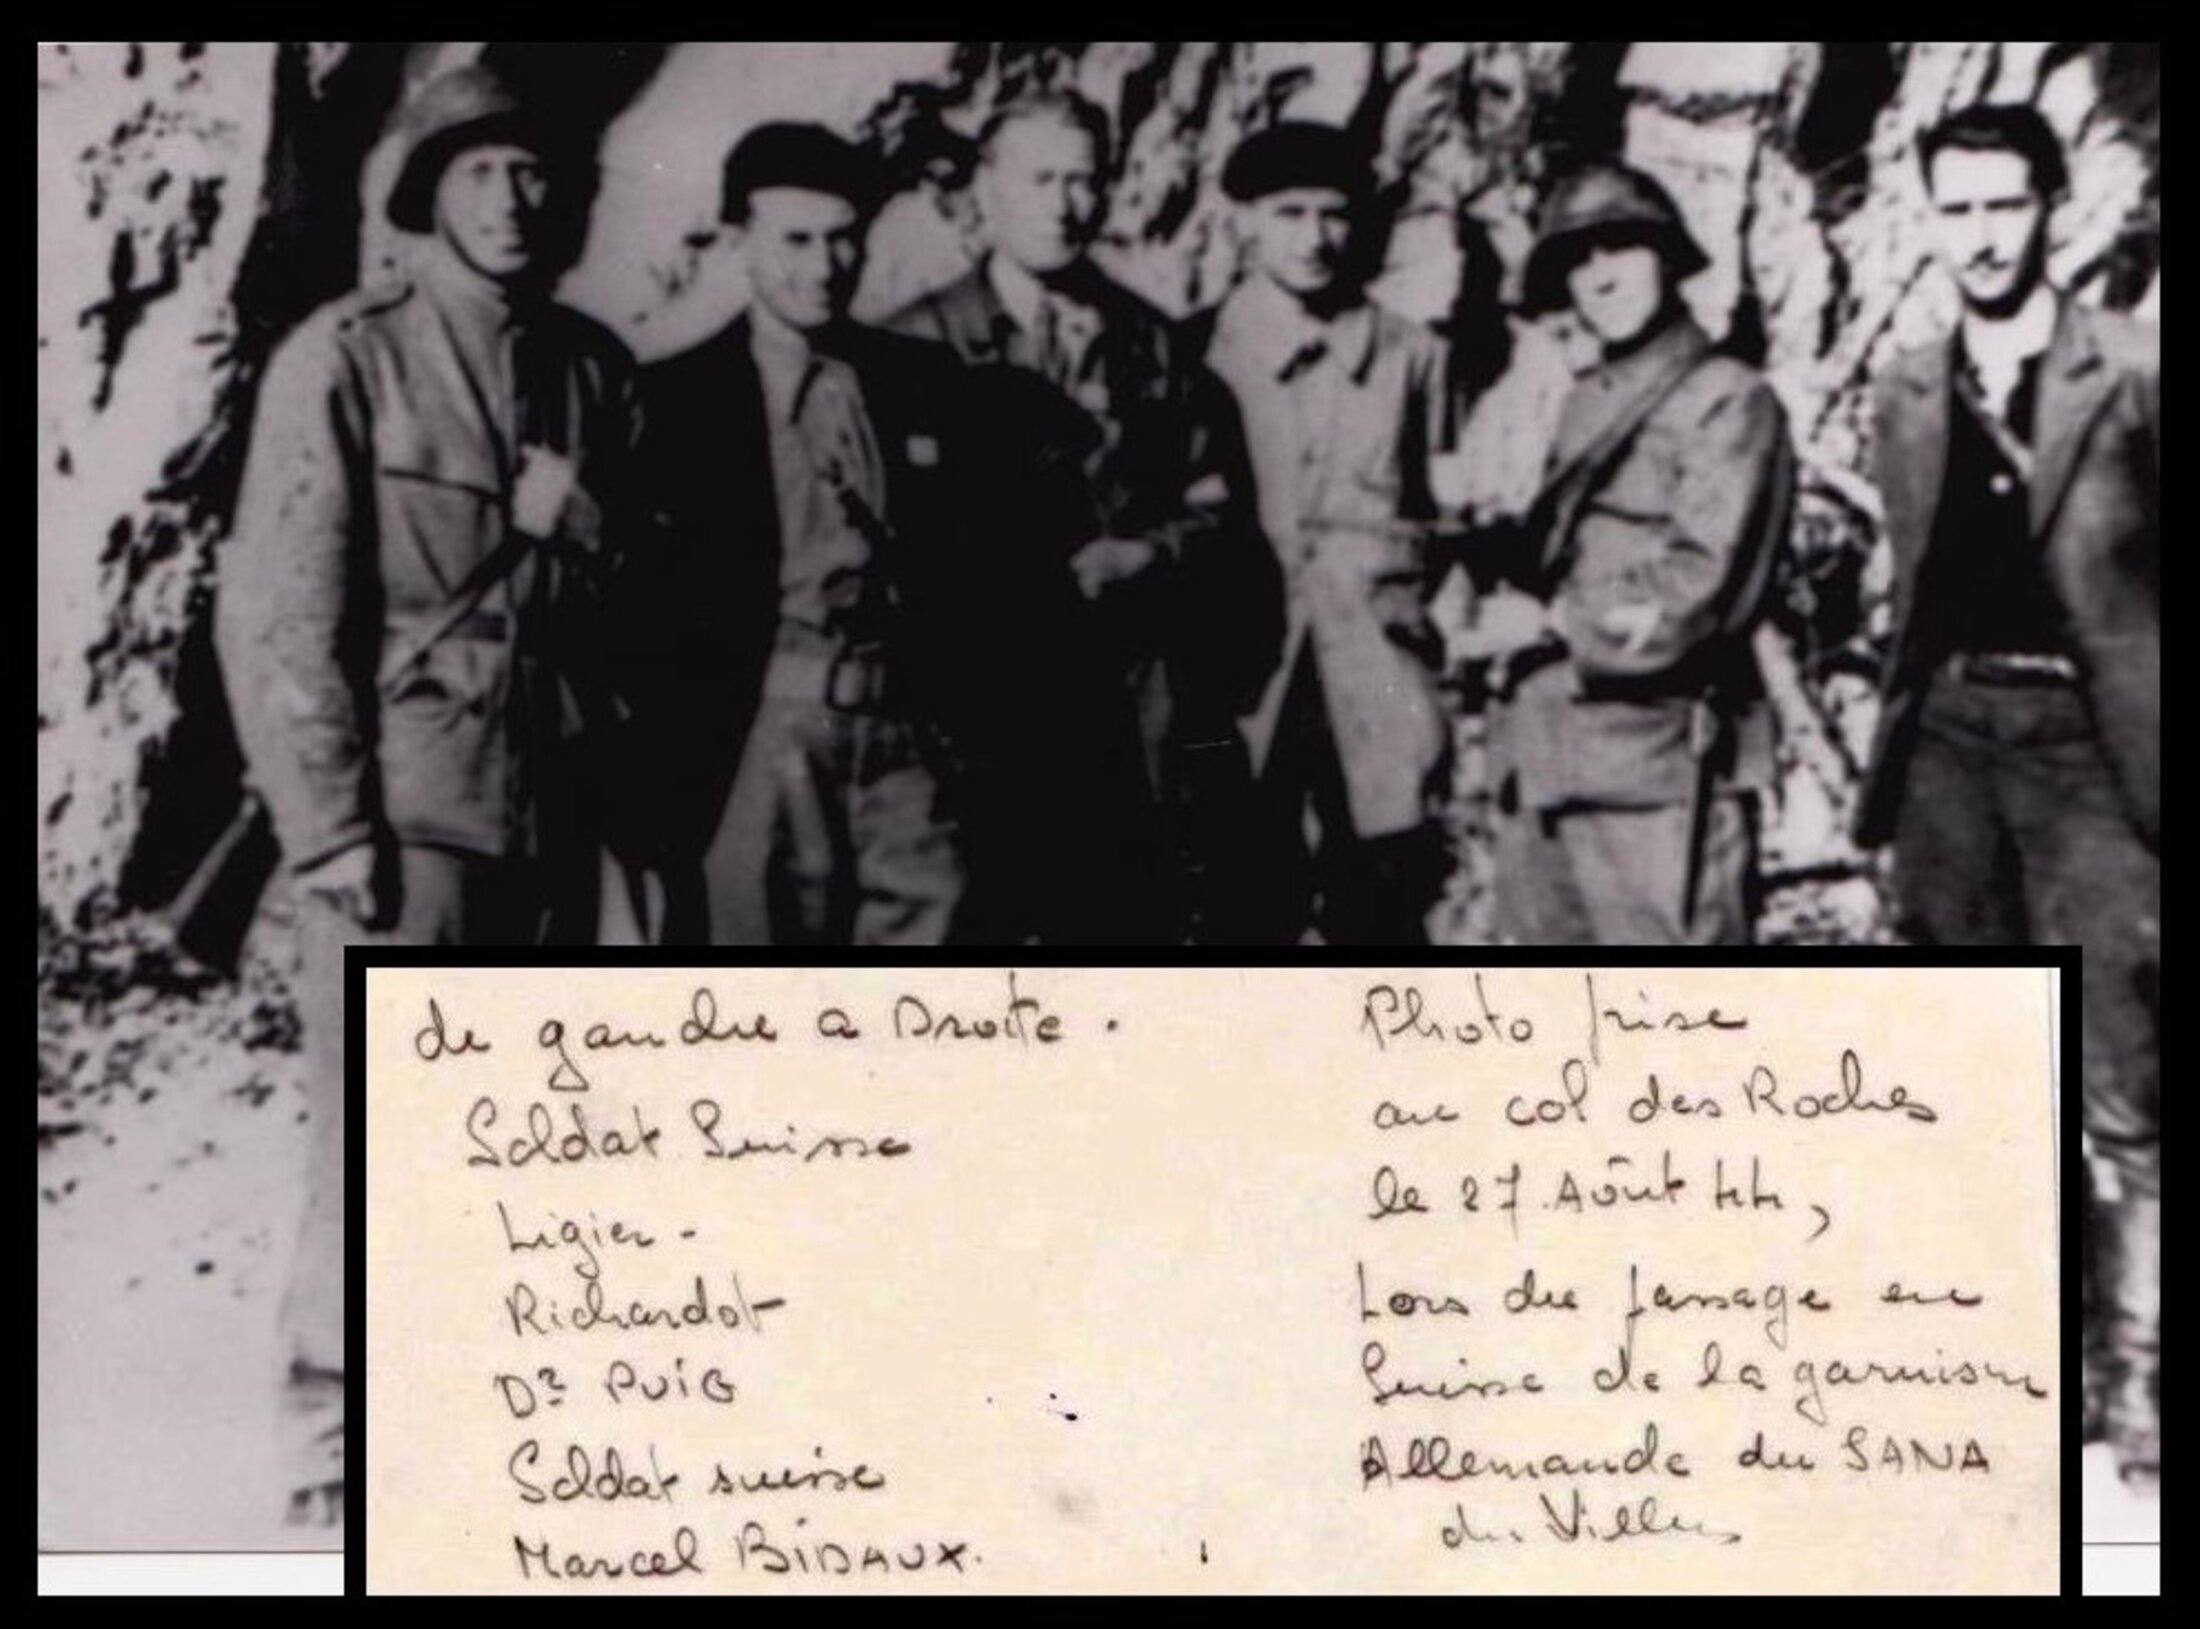 de gauche a Droite.
Soldat Suisse
Ligier -
Richardot
Dr PUiG
Soldat suisse
Marcel BiDAUX.
Photo prise
au col des Roches
le 27. Aôut 44,
Lors du passage en
Suisse de la garnison
Allemande du SANA
du Villers